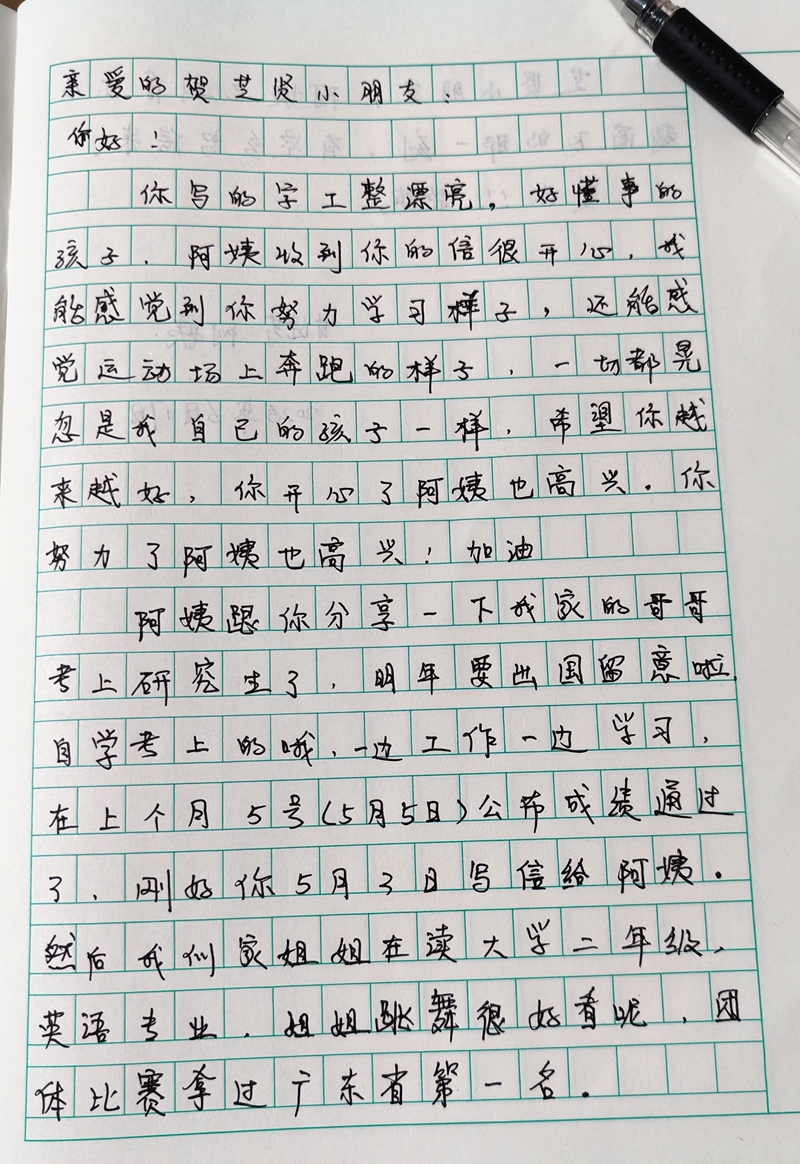 亲爱的贺芝贤小朋友:
你好!
你写的字工整漂亮,好懂事的
孩子,阿姨收到你的信很开心,我
能感觉到你努力学习样子,还能感
觉运动场上奔跑的样子,一切都晃
忽是我自己的孩子一样,希望你越
来越好,你开心了阿姨也高兴。你
努力了阿姨也高兴!加油
阿姨跟你分享一下我家的哥哥
考上研究生了,明年要出国留意啦,
自学考上的哦,一边工作一边学习,
在上个月5号(5月5日)公布成绩通过
了,刚好你5月3日写信给阿姨。
然后我们家姐姐在读大学二年级,
英语专业,姐姐跳舞很好看呢,团
体比赛拿过广东省第一名。